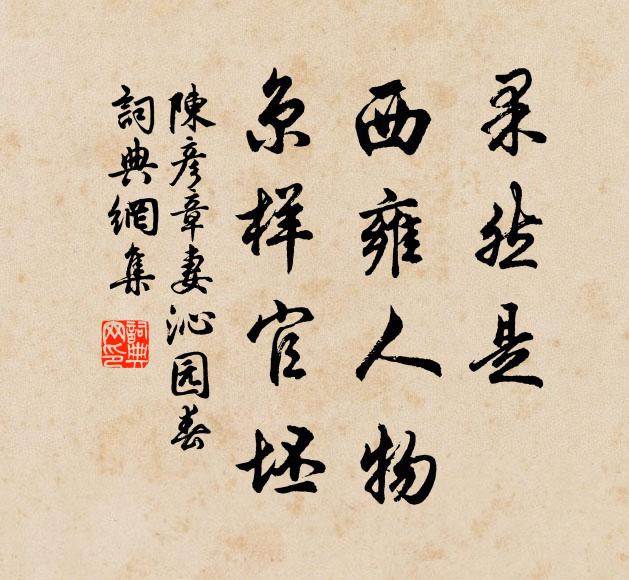 果然是
西雍人物
京样官坯
陳彦章妻沁园春
詞典網集
詞典
网印